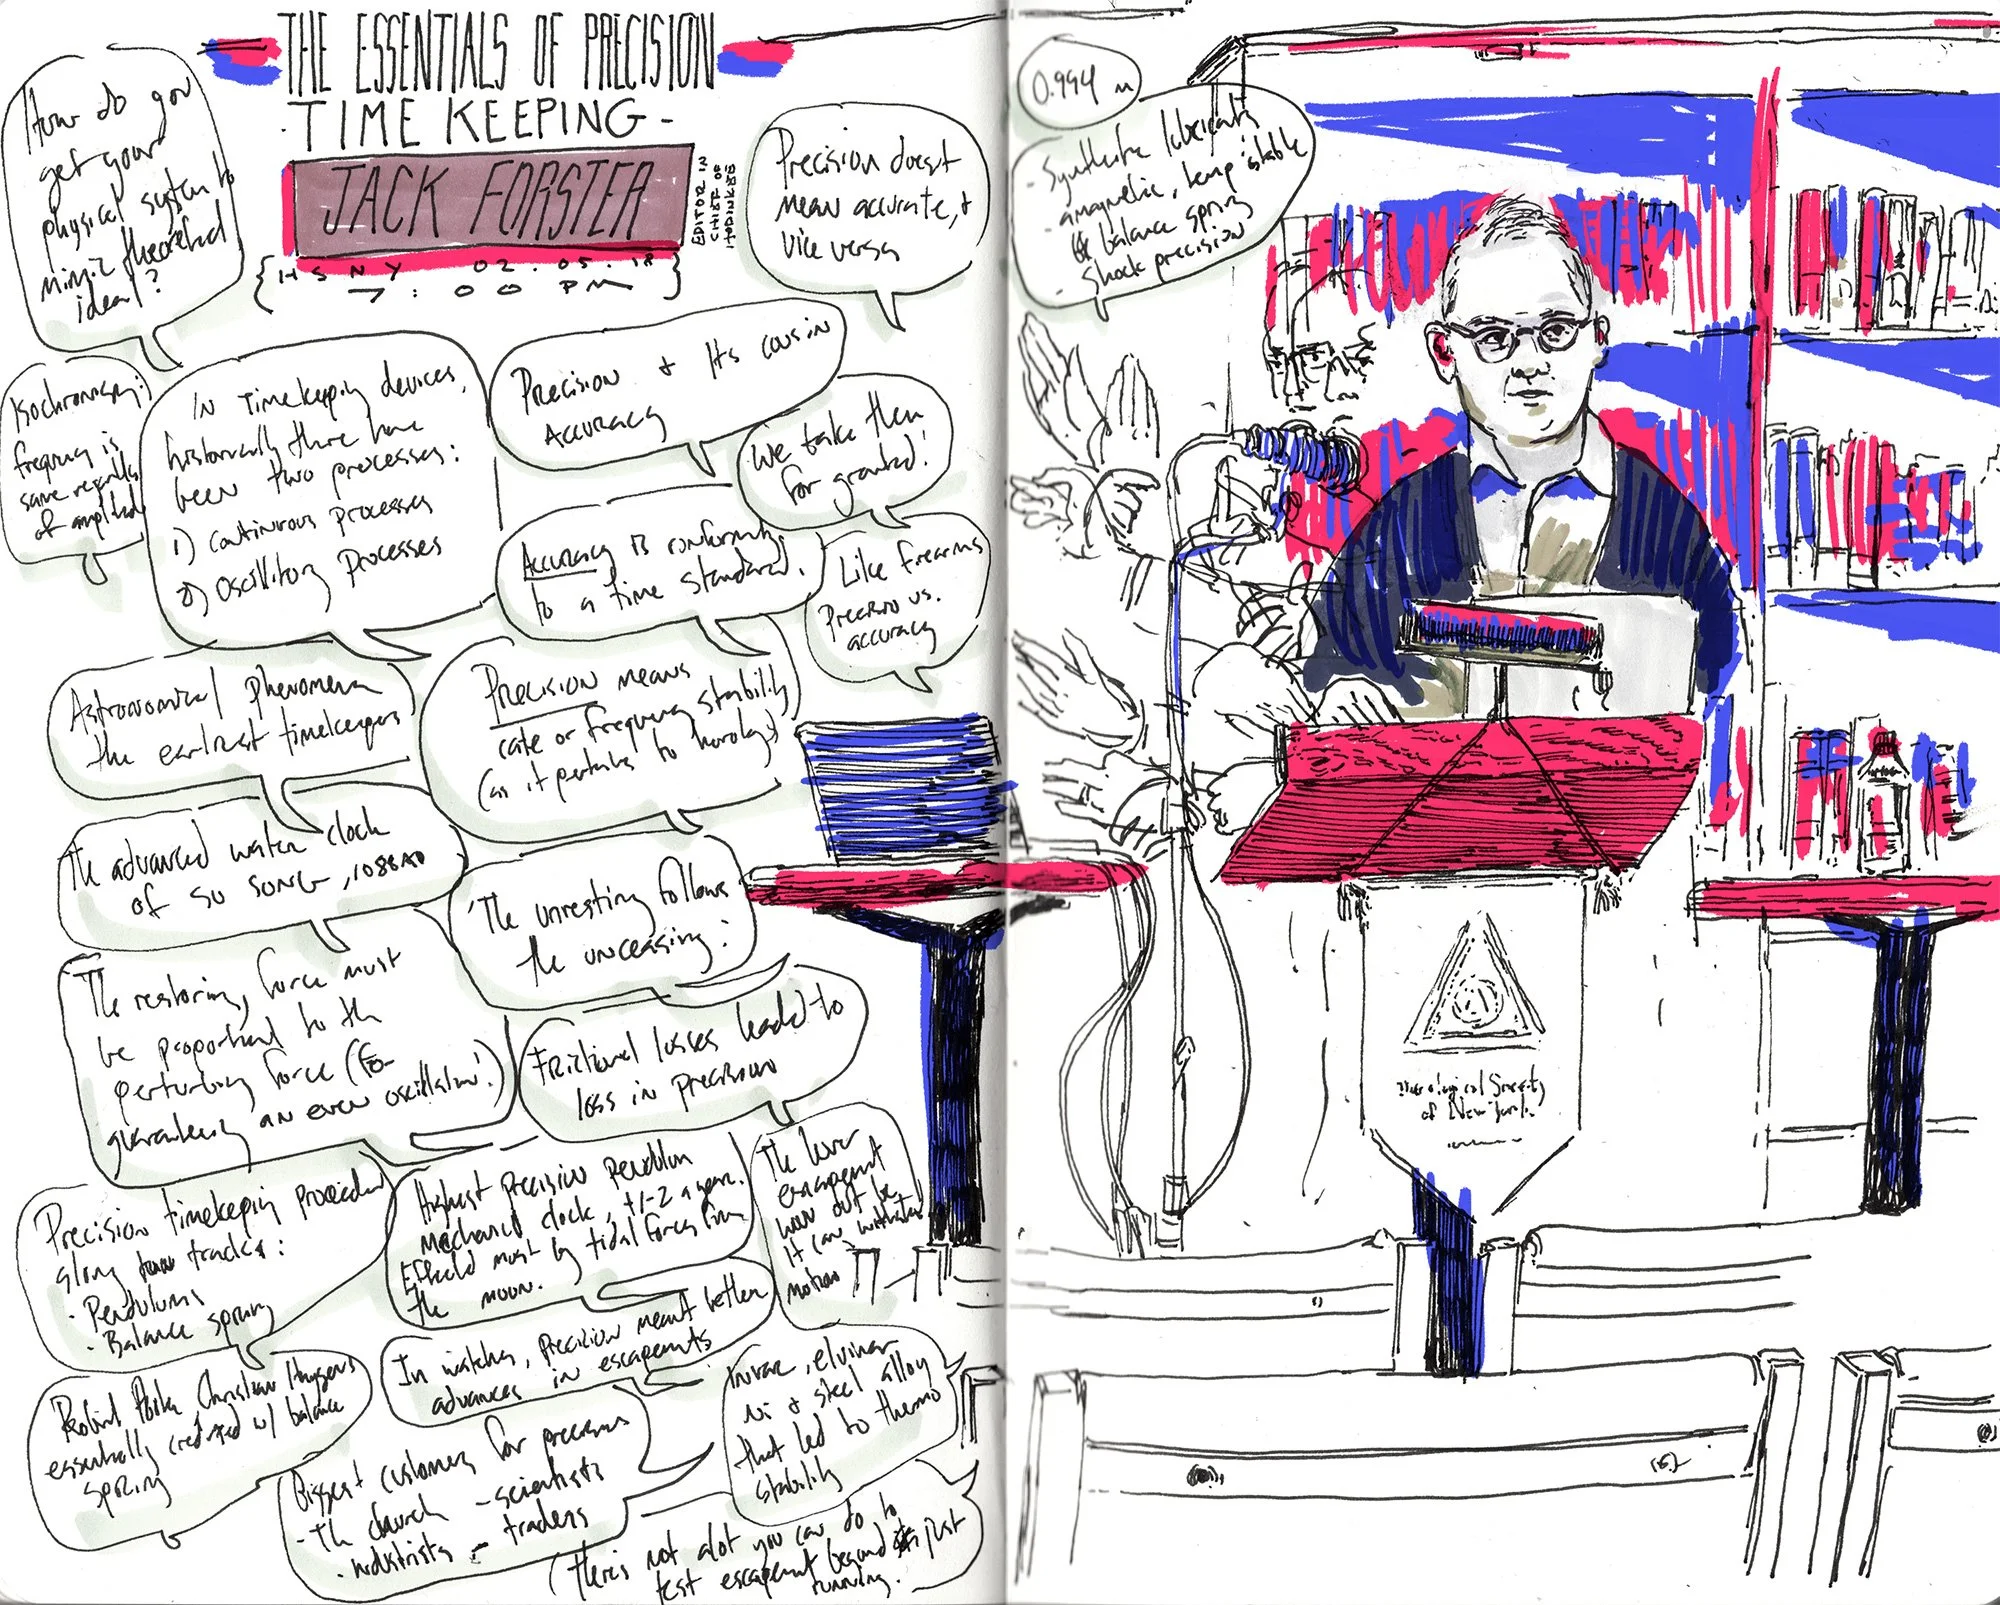 THE ESSENTIALS OF PRECISION
- TIME KEEPING -
JACK FORSTER
EDITOR IN
CHIEF OF
HODINKEE
{HSNY 02.05.18
7:00 PM}
How do you
get your
physical system to
mimic theoretical
ideal?
Precision doesnt
mean accurate, &
vice versa
Isochronism:
frequency is
same regardless
of amplitude
IN Timekeeping devices,
historically there have
been two processes:
1) continuous processes
2) oscillitory processes
Precision & Its cousin
Accuracy
We take then
for granted!
Accuracy is conformity
to a time standard.
Like firearms
Precision vs.
accuracy
Astronomical phenomena
the earliest timekeepers
Precision means
rate or frequency stability
(as it pertains to horology)
The advanced water clock
of SU SONG, 1088AD
'The unresting follows
the unceasing'
The restoring force must
be proportional to the
perturbing force (for
guaranteeing an even oscillation!)
Frictional losses leads to
loss in precision
Precision timekeeping proceeded
along two tracks:
- Pendulums
- Balance spring
Highest precision pendulum
mechanical clock, +/-2 a year.
Effected most by tidal forces from
the moon.
The lever
escapement
won out bc
it can withstand
motion
In watches, precision meant better
advances in escapements
Robert Hooke Christian Huygens
essentially credited w/ balance
spring
Invar, elinvar
Ni & steel alloy
that led to thermo
stability
Biggest customers for precision
- The church - scientists
- industrists - traders
(There's not alot you can do to
test escapement beyond just
running.
0.994 m
- Synthetic lubricants
- amagnetic, temp stable
balance spring
- Shock precision
Horological Society
of New York